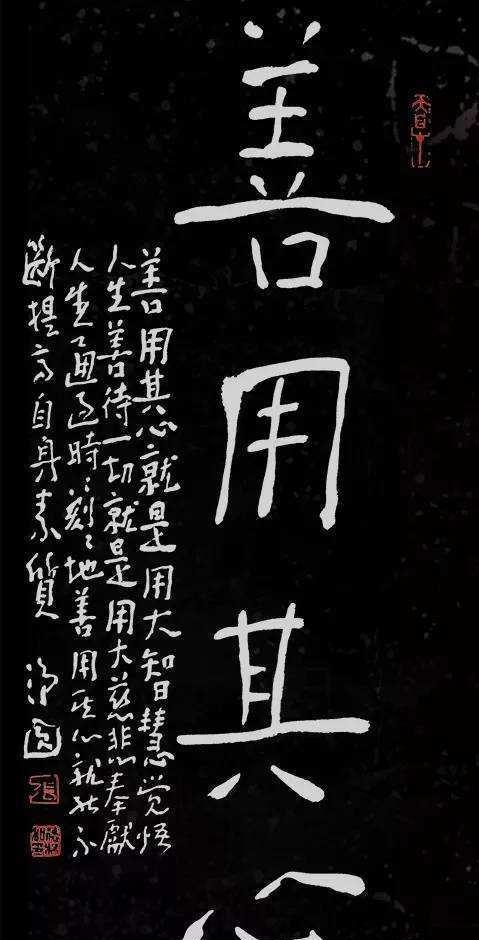 善用其
善用其心就是用大智慧觉悟
人生善待一切就是用大慈悲奉獻
人生通過時〻刻〻地善用其心就能不
斷提高自身素質